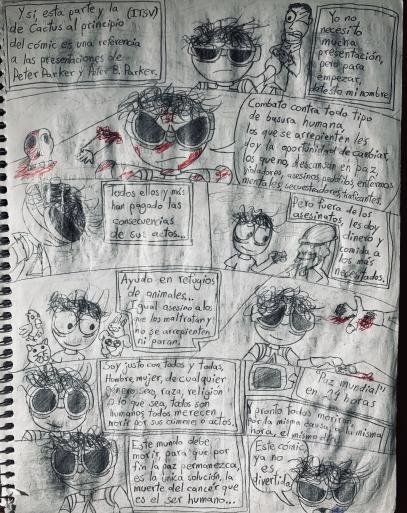 Y sí, esta parte y la (ITSV)
de Cactus al principio
del cómic es una referencia
a las presentaciones de
Peter Parker y Peter B. Parker.
Yo no
necesito
mucha
presentación,
pero para
empezar,
detesto mi nombre
Combato contra todo tipo
de basura humana,
los que se arrepienten les
doy la oportunidad de cambiar,
los que no, descansan en paz,
violadores, asesinos, pedofilos, enfermos
mentales, secuestradores, traficantes.
Todos ellos y más
han pagado las
consecuencias
de sus actos...
Pero fuera de los
asesinatos, les doy
dinero y
comida a
los más
necesitados.
Ayudo en refugios
de animales...
Igual asesino a los
que los maltratan y
no se arrepienten
ni paran.
Soy justo con todos y todas,
Hombre, mujer, de cualquier
género, sea, raza, religión
o lo que sea, todos son
humanos todos merecen
morir por sus crímenes o actos..
"Paz mundial"
en 24 hora!
Y pronto todos morirán
por la misma causa, a la misma
hora, el mismo día
Este mundo debe
morir para que por
fin la paz permanezca,
es la única solución, la
muerte del cáncer que
es el ser humano...
Este cómic,
ya no
es
divertido